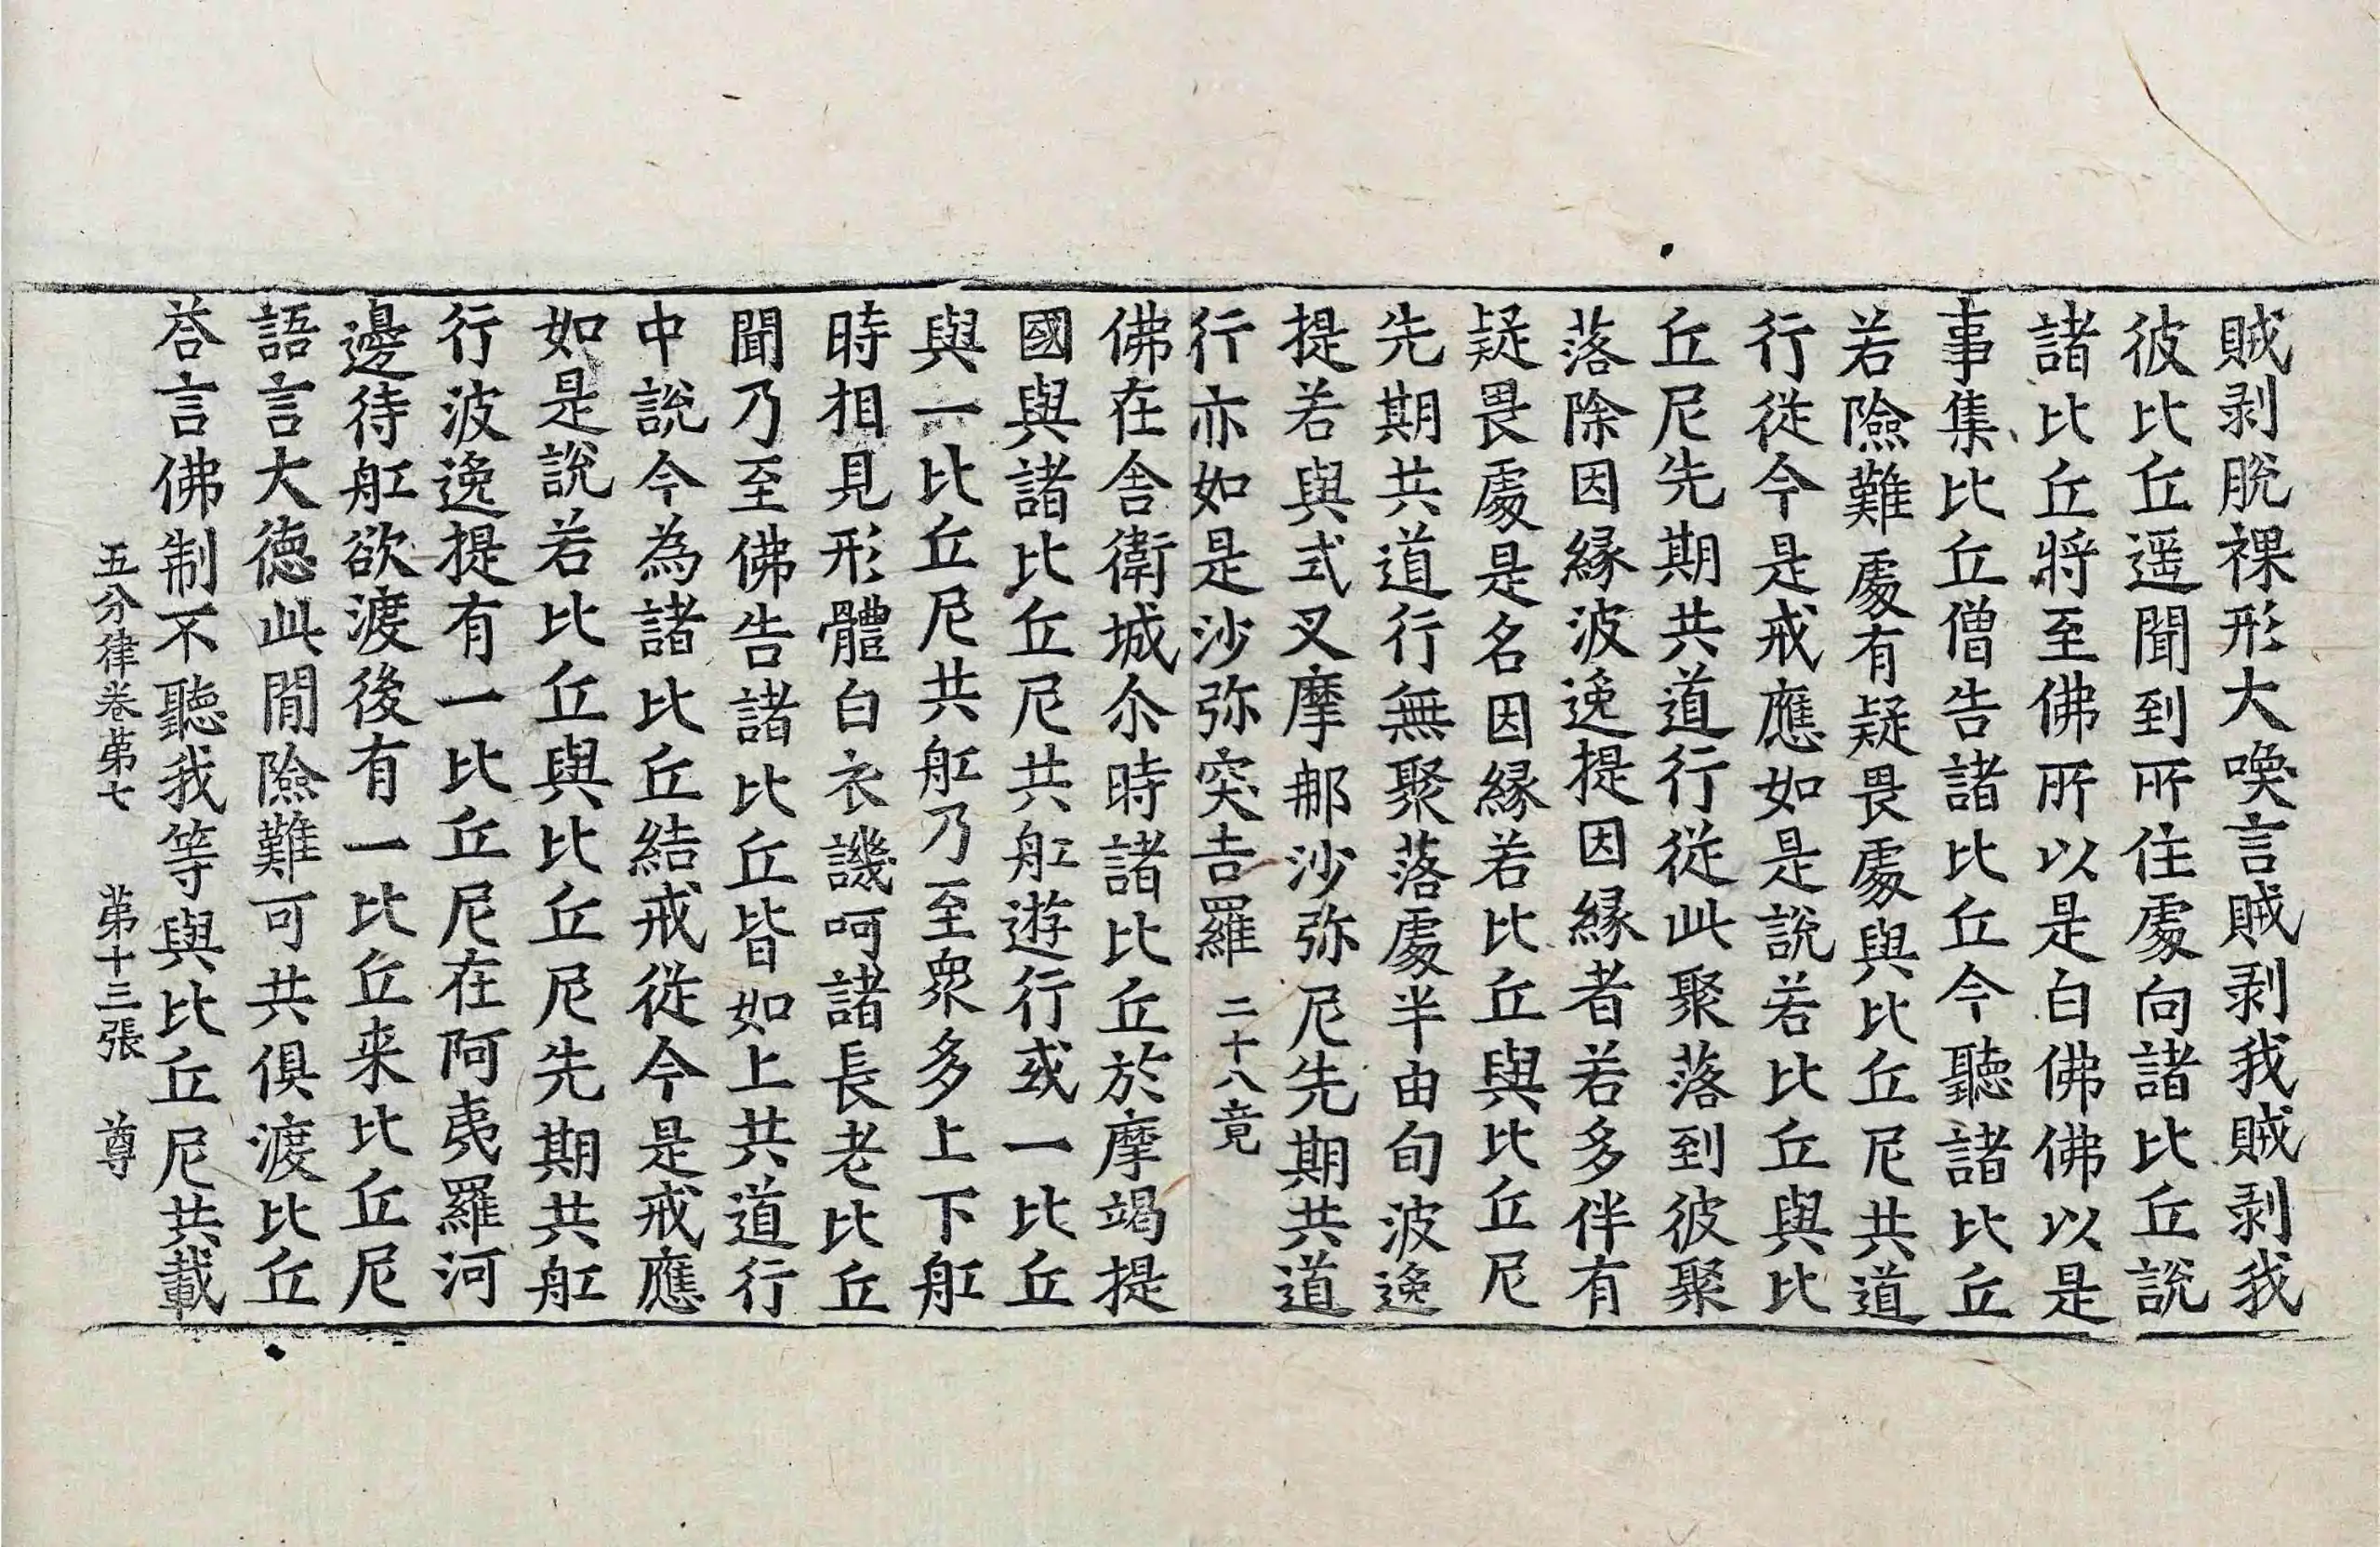 賊剥脫裸形大喚言賊剥我賊剥我
彼比丘遥聞到所住處向諸比丘說
諸比丘將至佛所以是白佛佛以是
事集比丘僧告諸比丘今聽諸比丘
若險難處有疑畏處與比丘尼共道
行從今是戒應如是說若比丘與比
丘尼先期共道行從此聚落到彼聚
落除因緣波逸提因緣者若多伴有
疑畏處是名因緣若比丘與比丘尼
先期共道行無聚落處半由旬波逸
提若與式叉摩那沙弥尼先期共道
行亦如是沙弥突吉羅 二十八竟
佛在舍衛城尒時諸比丘於摩竭提
國與諸比丘尼共舡遊行或一比丘
與一比丘尼共舡乃至衆多上下舡
時相見形體白衣譏呵諸長老比丘
聞乃至佛告諸比丘皆如上共道行
中說今為諸比丘結戒從今是戒應
如是說若比丘與比丘尼先期共舡
行波逸提有一比丘尼在阿夷羅河
邊待舡欲渡後有一比丘来比丘尼
語言大徳此間險難可共俱渡比丘
荅言佛制不聽我等與比丘尼共載
五分律卷苐七 苐十三張 尊